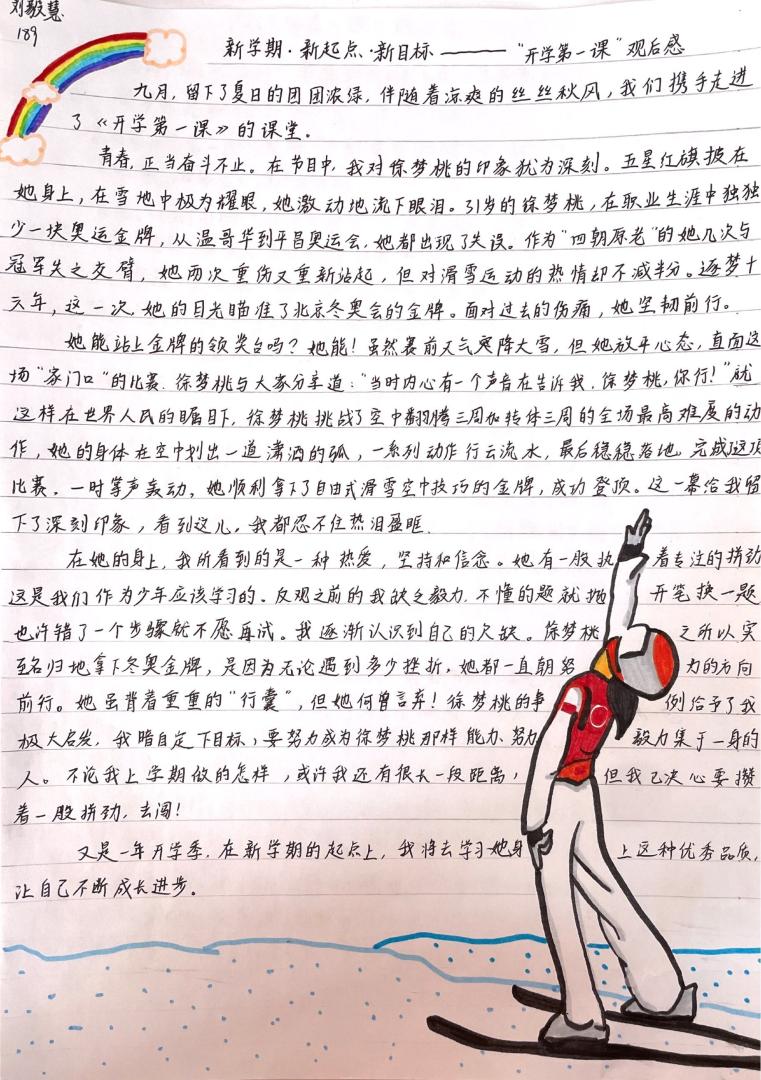 刘毅慧
189
新学期·新起点·新目标——“开学第一课”观后感
九月,留下了夏日的团团浓绿,伴随着凉爽的丝丝秋风,我们携手走进
了《开学第一课》的课堂。
青春,正当奋斗不止。在节目中,我对徐梦桃的印象犹为深刻。五星红旗披在
她身上,在雪地中极为耀眼,她激动地流下眼泪。31岁的徐梦桃,在职业生涯中独独
少一块奥运金牌,从温哥华到平昌奥运会,她都出现了失误。作为“四朝原老”的她几次与
冠军失之交臂,她两次重伤又重新站起,但对滑雪运动的热情却不减半分。逐梦十
六年,这一次,她的目光瞄准了北京冬奥会的金牌。面对过去的伤痛,她坚韧前行。
她能站上金牌的领奖台吗?她能!虽然赛前天气寒降大雪,但她放平心态,直面这
场“家门口”的比赛.徐梦桃与大家分享道:“当时内心有一个声音在告诉我,徐梦桃,你行!”就
这样在世界人民的瞩目下,徐梦桃挑战了空中翻腾三周加转体三周的全场最高难度的动
作,她的身体在空中划出一道潇洒的弧,一系列动作行云流水,最后稳稳落地,完成这项
比赛.一时掌声轰动,她顺利拿下了自由式滑雪空中技巧的金牌,成功登顶。这一幕给我留
下了深刻印象,看到这儿,我都忍不住热泪盈眶.
在她的身上,我所看到的是一种热爱,坚持和信念。她有一股执着专注的拼劲
这是我们作为少年应该学习的。反观之前的我缺乏毅力,不懂的题就抛开笔换一题
也许错了一个步骤就不愿再试。我逐渐认识到自己的欠缺。徐梦桃之所以实
至名归地拿下冬奥金牌,是因为无论遇到多少挫折,她都一直朝努力的方向
前行。她虽背着重重的“行囊”,但她何曾言弃!徐梦桃的事例给予了我
极大启发,我暗自定下目标,要努力成为徐梦桃那样能力、努力毅力集于一身的
人。不论我上学期做的怎样,或许我还有很长一段距离,但我已决心要攒
着一股拼劲,去闯!
又是一年开学季,在新学期的起点上,我将去学习她身上这种优秀品质,
让自己不断成长进步。